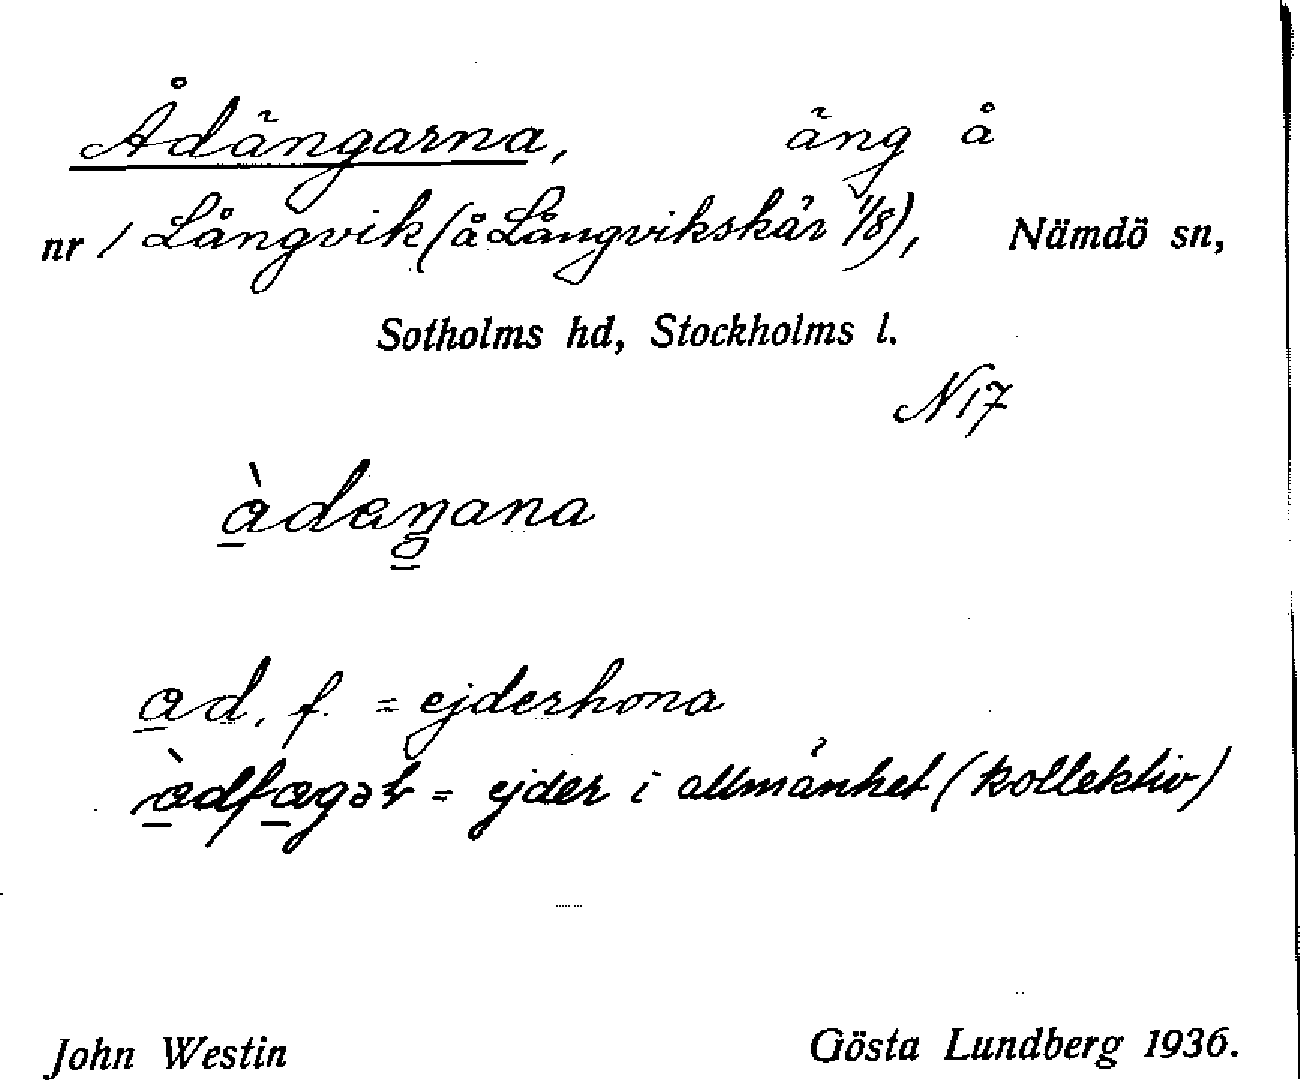 Ådängarna, äng å
nr 1 Långvik (å Långvikskär 1/8), Nämdö sn,
Sotholms hd, Stockholms l.
N17
àdaŋana
ad. f. = ejderhona
àdfagəl = ejder i allmänhet (kollektiv)
John Westin Gösta Lundberg 1936.